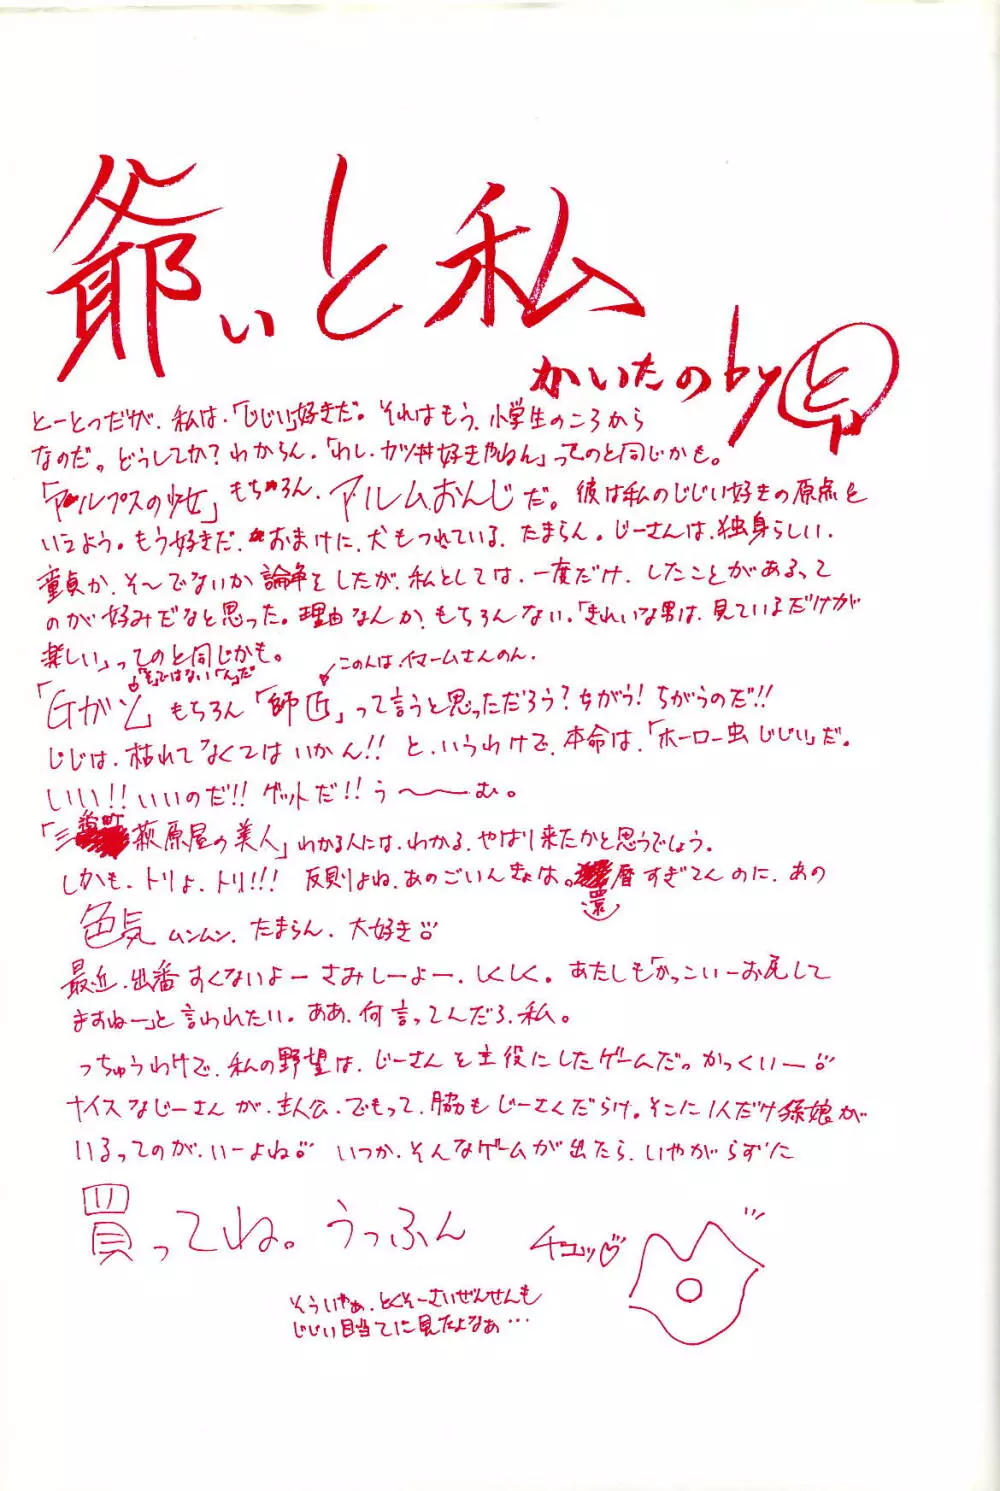 爺ぃと私
かいたの by と
とーとつだが、私は、「じじい」好きだ。それはもう、小学生のころから
なのだ。どうしてか?わからん、「わし、カツ丼好きやねん」ってのと同じかも。
「アルプスの少女」もちろん、アルムおんじだ。彼は私のじじい好きの原点と
いえよう。もう好きだ、おまけに、犬もつれている、たまらん。じーさんは、独身らしい、
童貞か、そーでないか論争をしたが、私としては、一度だけ、したことがあるって
のが好みだなと思った。理由なんか、もちろんない。「きれいな男は、見ているだけが
楽しい」ってのと同じかも。
「そ」ではない「ん」だ
この人は、イマームさんのん。
「Gガン」もちろん「師匠」って言うと思っただろう?ちがう!ちがうのだ!!
じじは、枯れてなくてはいかん!!と、いうわけで、本命は、「ホーロー虫じじい」だ。
いい!!いいのだ!!ゲットだ!!う〜〜む。
「三番町萩原屋の美人」わかる人には、わかる、やはり来たかと思うでしょう。
しかも、トリよ、トリ!!!反則よね、あのごいんきょは。還暦すぎてんのに、あの
色気ムンムン、たまらん、大好き
最近、出番すくないよーさみしーよー、しくしく。あたしも「かっこいーお尻して
ますねー」と言われたい。ああ、何言ってんだろ、私。
っちゅうわけで、私の野望は、じーさんを主役にしたゲームだ。かっくいー
ナイスなじーさんが、主人公、でもって、脇もじーさんだらけ。そこに1人だけ孫娘が
いるってのが、いーよね いつか、そんなゲームが出たら、いやがらずに
買ってね。うっふん
チュッ♡
そういやぁ、とくそーさいぜんせんも
じじい目当てに見たよなぁ…